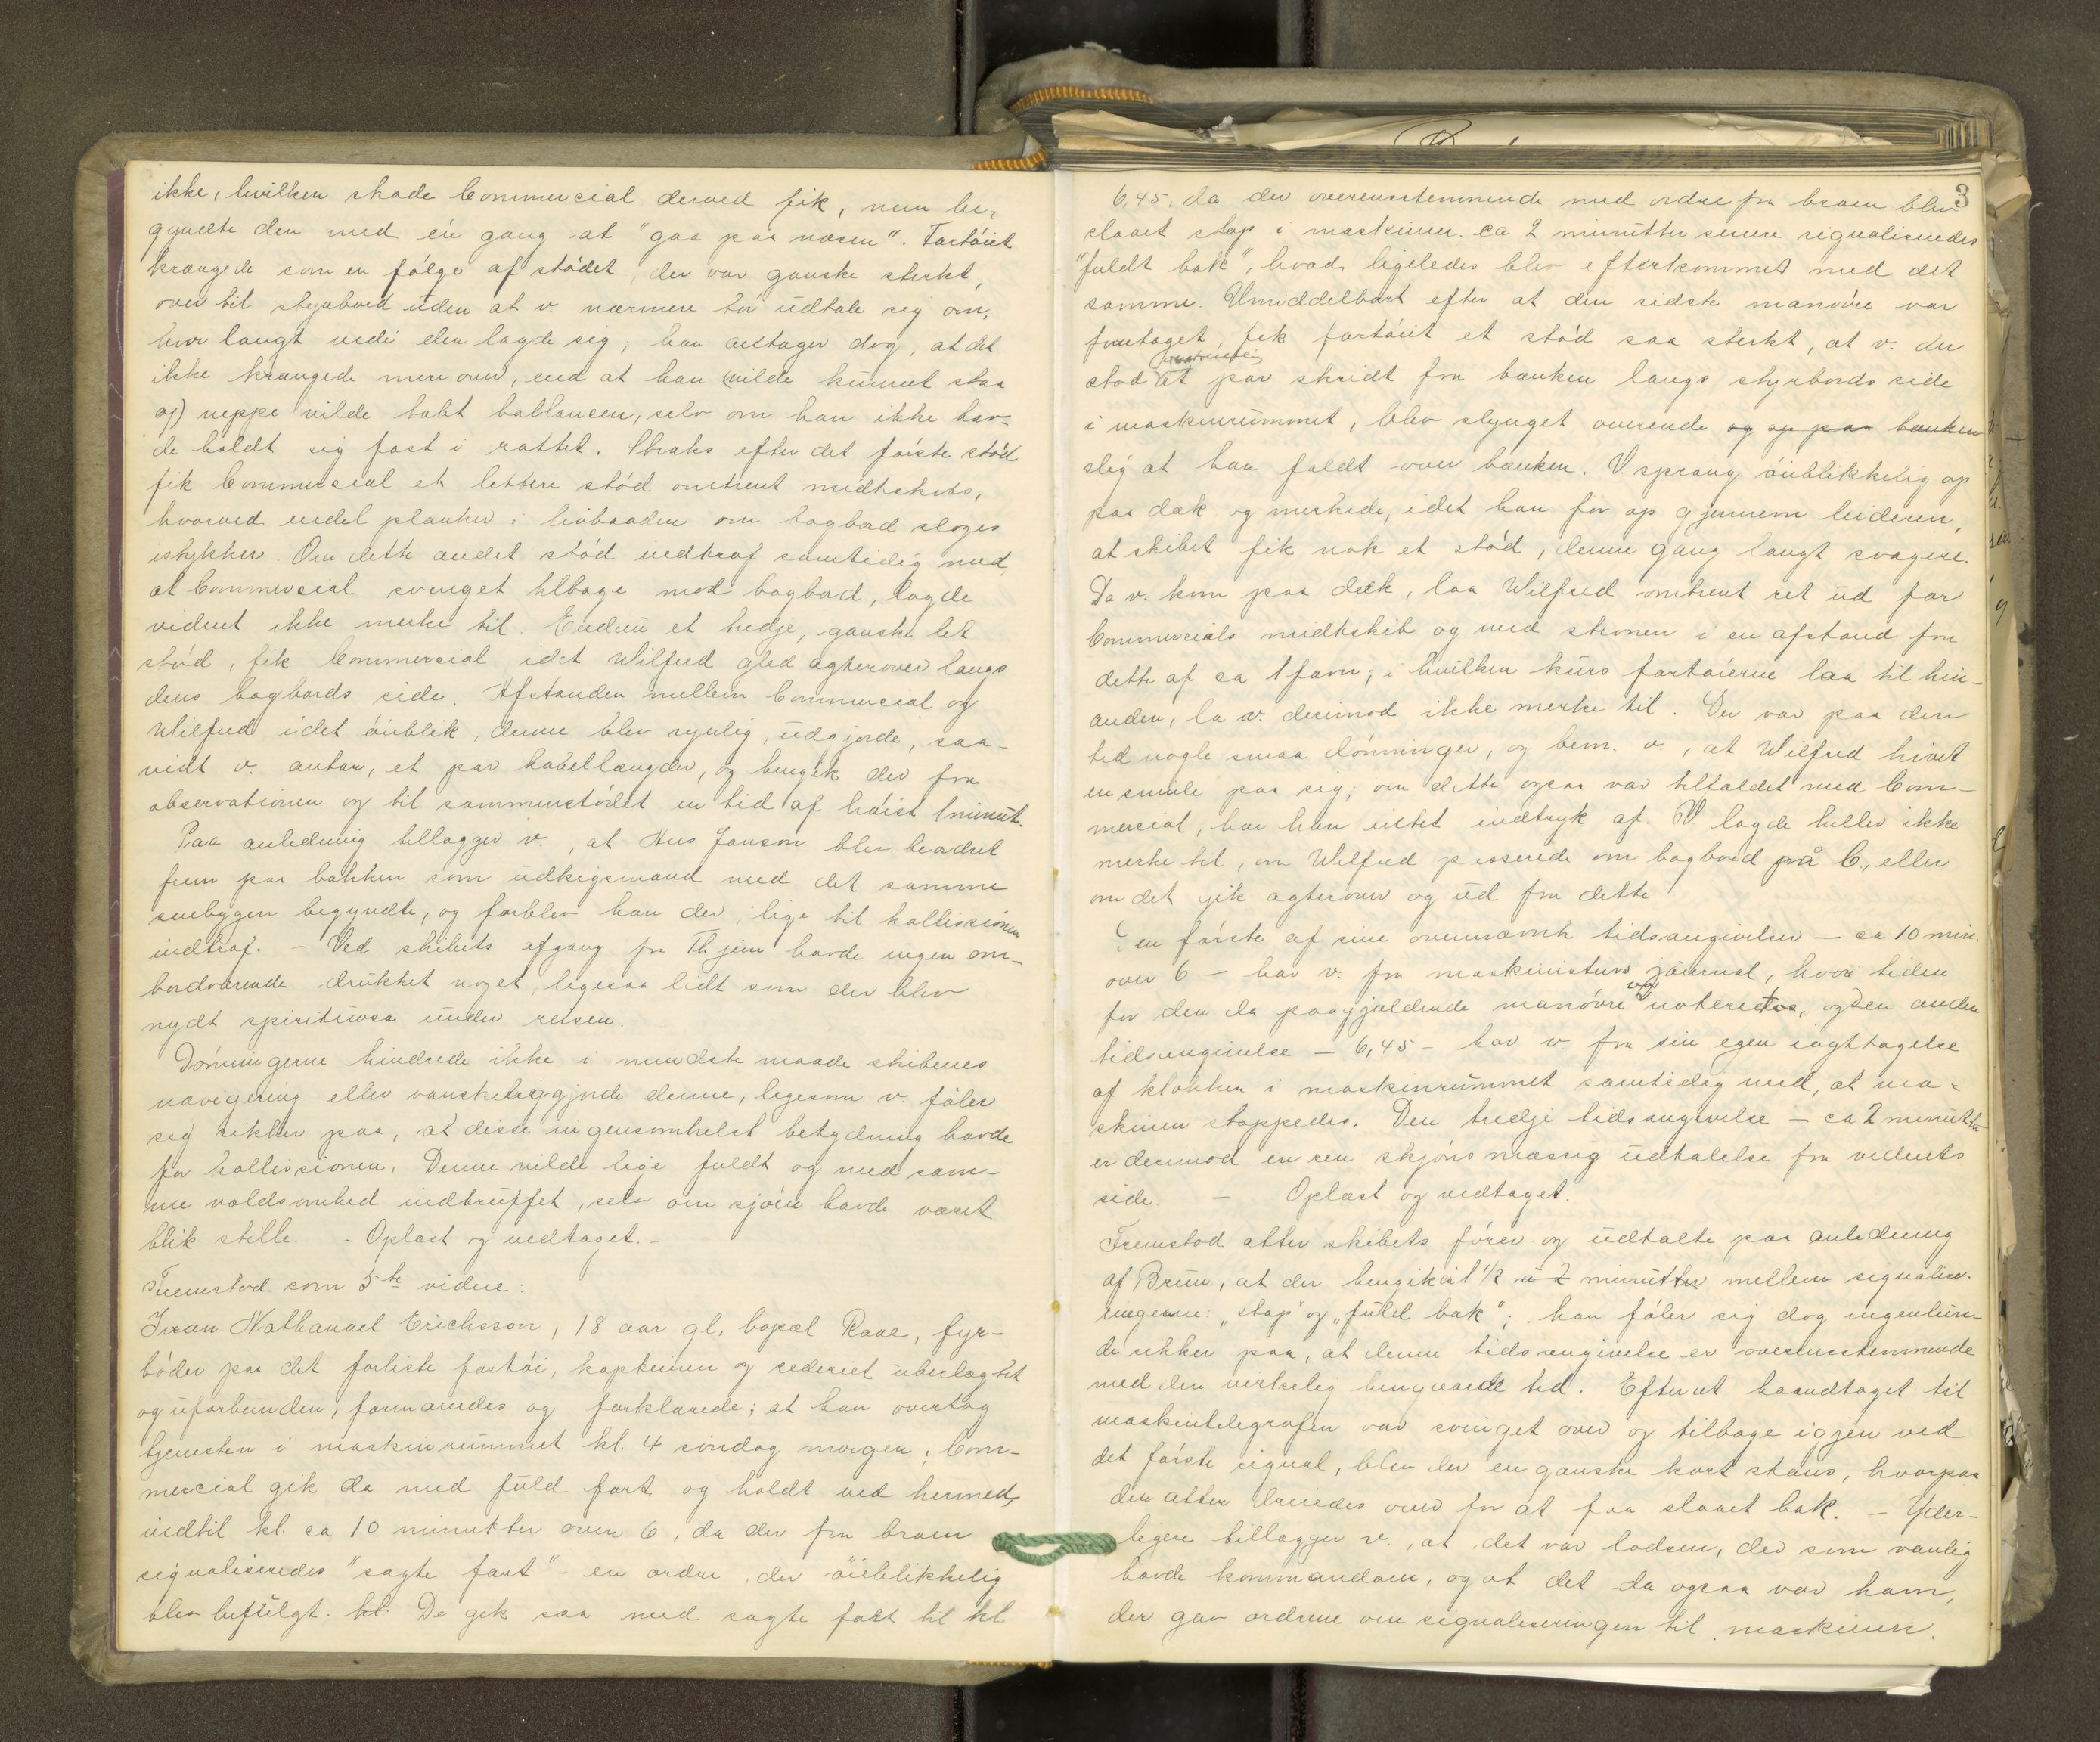 ikke, hvilken skade Commercial derved fik, men be-
gyndte den med én gang at "gaa paa næsen". Fartöiet
krængede som en fölge af stödet, der var ganske sterkt,
over til styrbord uden at v. nærmere tör udtale sig om,
hvor langt ned den lagde sig; han antager dog, at det
ikke krængede mere over, end at han (vilde kunnet staa
og) neppe vilde tabt ballancen, selv om han ikke hav-
de holdt sig fast i rattet. Straks efter det förste stöd
fik Commercial et lettere stöd omtrent midtskibs,
hvorved endel planker i livbaaden om bagbord sloges
istykker. Om dette andet stöd indtraf samtidig med,
at Commercial svinget tilbage mod bagbord, lagde
vidnet ikke merke til. Endnu et tredje, ganske let
stöd, fik Commercial idet Wilfred gled agterover langs
dens bagbords side. Afstanden mellem Commercial og
Wilfred i det öieblik, denne blev synlig, udgjorde, saa-
vidt v. antar, et par kabellængder, og hengik der fra
observationen og til sammenstödet en tid af höist 1 minut.
Paa anledning tillægger v., at Hus Janson blev beordret
frem paa bakken som udkigsmand med det samme
snebygen begyndte, og forblev han der, lige til kollissionen
indtraf. - Ved skibets afgang fra Thjem havde ingen om-
bordværende drukket noget, ligesaa lidt som der blev
nydt spirituosa under reisen.
Dönningerne hindrede ikke i mindste maade skibenes
navigering eller vanskeliggjorde denne, ligesom v. föler
sig sikker paa, at disse ingensomhelst betydning havde
for kollissionen. Denne vilde lige fuldt og med sam-
me voldsomhed indtruffet, selv om sjöen havde været
blik stille. - Oplæst og vedtaget. -
Fremstod som 5te vidne:
Johan Nathanael Erichsson, 18 aar gl. bopæl Raae, fyr-
böder paa det forliste fartöi, kapteinen og rederiet ubeslægtet
og uforbunden, formanedes og forklarede; at han overtog
tjenesten i maskinrummet kl. 4 söndag morgen; Com-
mercial gik da med fuld fart og holdt ved hermed,
indtil kl. ca 10 minutter over 6, da der fra broen
signaliseredes "sagte fart" - en ordre, der öieblikkelig
blev befulgt. kl. De gik saa med sagte fart til kl.
3
6,45, da der overensstemmende med ordre fra broen blev
slaaet stop i maskinen. ca 2 minutter senere signaliseredes
"fuldt bak", hvad ligeledes blev efterkommet med det
samme. Umiddelbart efter at den sidste manövre var
foretaget, fik fartöiet et stöd saa sterkt, at v. der
stod et par skridt fra bænken langs styrbords side
i maskinrummet, blev slynget overende og op paa bænken
slig at han faldt over bænken. V. sprang öieblikkelig op
paa dæk og merkede, idet han for op gjennem leideren,
at skibet fik nok et stöd, denne gang langt svagere.
Da v. kom paa dæk, laa Wilfred omtrent ret ud for
Commercials midtskib og med stevnen i en afstand fra
dette af ca 1 favn; i hvilken kurs fartöierne laa til hin-
anden, la v. derimod ikke merke til. Der var paa den
tid nogle smaa dönninger, og bem. v., at Wilfred hivet
en smule paa sig; om dette ogsaa var tilfældet med Com-
mercial, har han intet indtryk af. V. lagde heller ikke
merke til, om Wilfred passerede om bagbord på C., eller
om det gik agterover og ud fra dette
Den förste af sine ovennævnte tidsangivelser - ca 10 min.
over 6 - har v. fra maskinisturs journal, hvor tiden
for den da paagjældende manövre noteredes, og den anden
tidsangivelse - 6,45 - har v. fra sin egen iagttagelse
af klokken i maskinrummet samtidig med, at ma-
skinen stoppedes. Den tredje tidsangivelse - ca 2 minutter
er derimod en ren skjönsmæssig udtalelse fra vidnets
side. - Oplæst og vedtaget.
Fremstod atter skibets förer og udtalte paa anledning
af Brun, at der hengik et 1/2 à 2 minutter mellem signalise-
ringerne: "stop" og "fuld bak"; han föler sig dog ingenlun-
de sikker paa, at denne tidsangivelse er overensstemmende
med den virkelig hengaaede tid. Efter at haandtaget til
maskintelegrafen var svinget over og tilbage igjen ved
det förste signal, blev der en ganske kort stans, hvorpaa
den atter dreiedes over for at faa slaaet bak. - Yder-
ligere tillægger v., at det var lodsen, der som vanlig
havde kommandoen, og at det da ogsaa var ham,
der gav ordrene om signaliseringen til maskinen.